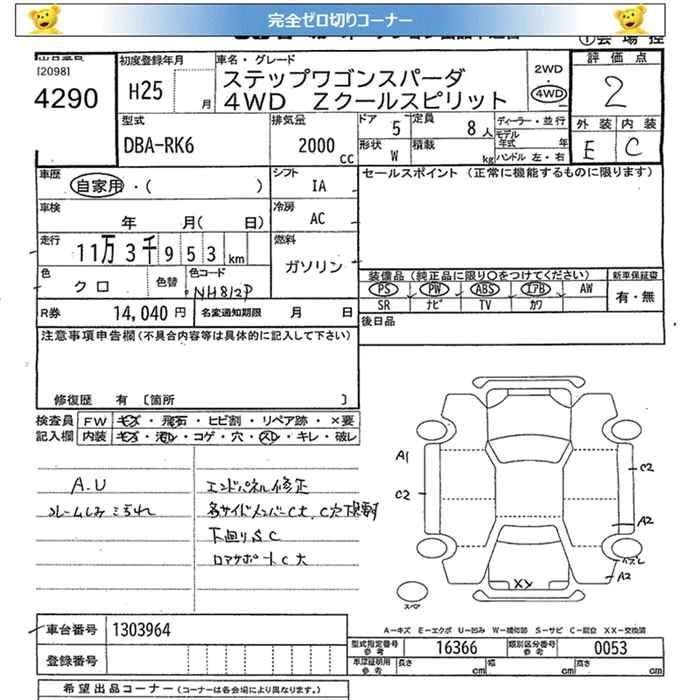 完全ゼロ切りコーナー
[2098]
4290
初度登録年月
H25
月
車名・グレード
ステップワゴンスパーダ
4WD Zクールスピリット
2WD
4WD
評価点
2
外装 内装
E C
型式
DBA-RK6
排気量
2000
cc
ドア 5
形状 W
定員 8人
積載 kg
ディーラー・並行
モデル
年式 年
ハンドル 左・右
車歴
自家用・( )
シフト
IA
セールスポイント (正常に機能するものに限ります)
車検
年 月( 日)
冷房
AC
走行
11万3千953km
燃料
ガソリン
色
クロ
色替
色コード
NH812P
装備品(純正品に限り○をつけてください)
新車保証書
PS PW ABS エアB AW
有・無
SR ナビ TV カワ
R券 14,040円
名変通知期限 月 日
後日品
注意事項申告欄(不具合内容等は具体的に記入して下さい)
修復歴 有 〔箇所 〕
検査員
記入欄
FW キズ・飛石・ヒビ割・リペア跡・×要
内装 キズ・汚レ・コゲ・穴・スレ・キレ・破レ
A.U
エンドパネル修正
下回りSC
ロアサポートC大
A1
C2
C2
A2
A2
XX
スペア
A－キズ E－エクボ U－凹み W－補修跡 S－サビ C－腐食 XX－交換済
車台番号 1303964
登録番号
型式指定番号
参考
16366
類別区分番号
参考
0053
車庫証明用
参考
長さ cm
幅 cm
高さ cm
希望出品コーナー(コーナーは各会場により異なります)